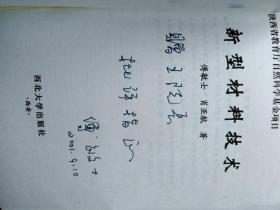 陕西省教育厅自然科学基金项目
新型材料技术
傅敏士 肖亚航 著
赠王院长
批评指正
傅敏士
2001.9.10
西北大学出版社
·西安·